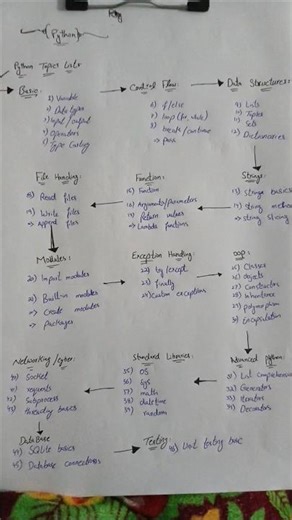 {Python}
Python Topics List:
Basic:
1) Variable
2) Data types
3) Input/output
4) Operators
5) Type Casting
Control Flow:
6) if/else
7) loop (for, while)
8) break/continue
→ pass
Data Structures:
9) Lists
10) Tuples
11) Sets
12) Dictionaries
Strings:
13) Strings basics
14) String methods
→ String slicing
Function:
15) Function
16) Arguments/Parameters
17) Return values
→ Lambda functions
File Handling:
18) Read files
19) Write files
→ Append files
Modules:
20) Import modules
21) Built-in modules
→ Create modules
→ Packages
Exception Handling:
22) try/except
23) finally
24) Custom exceptions
OOP:
25) Classes
26) Objects
27) Constructor
28) Inheritance
29) Polymorphism
30) Encapsulation
Advanced Python:
31) List comprehension
32) Generators
33) Iterators
34) Decorators
Standard Libraries:
35) OS
36) Sys
37) math
38) datetime
39) random
Networking/Cyber:
40) Socket
41) requests
42) Subprocess
43) threading basics
DataBase
44) SQLite basics
45) Database connections
Testing:
46) Unit testing basic